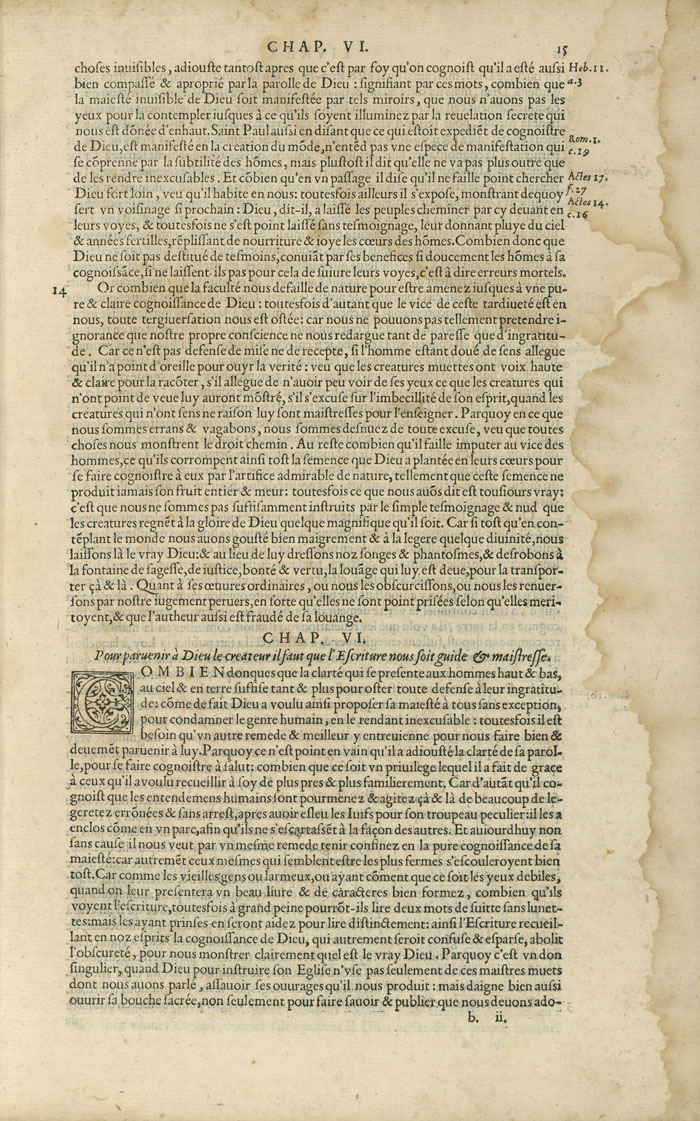 CHAP. VI. 15
choses inuisibles, adiouste tantost apres que c'est par foy qu'on cognoist qu'il a esté aussi Heb. 11.
bien compassé & aproprié par la parolle de Dieu: signifiant par ces mots, combien que a.3
la maiesté inuisible de Dieu soit manifestée par tels miroirs, que nous n'auons pas les
yeux pour la contempler iusques à ce qu'ils soyent illuminez par la reuelation secrete qui
nous est dōnée d'enhaut. Saint Paul aussi en disant que ce qui estoit expediēt de cognoistre
de Dieu, est manifesté en la creation du mōde, n'entēd pas vne espece de manifestation qui Rom. 1. c.19
se cōprenne par la subtilité des hōmes, mais plustost il dit qu'elle ne va pas plus outre que
de les rendre inexcusables. Et cōbien qu'en vn passage il dise qu'il ne faille point chercher Actes 17.
Dieu fort loin, veu qu'il habite en nous: toutesfois ailleurs il s'expose, monstrant dequoy f.27
sert vn voisinage si prochain: Dieu, dit-il, a laissé les peuples cheminer par cy deuant en Actes 14. c.16
leurs voyes, & toutesfois ne s'est point laissé sans tesmoignage, leur donnant pluye du ciel
& années fertilles, rēplissant de nourriture & ioye les cœurs des hōmes. Combien donc que
Dieu ne soit pas destitué de tesmoins, conuiāt par ses benefices si doucement les hōmes à sa
cognoissāce, si ne laissent-ils pas pour cela de suiure leurs voyes, c'est à dire erreurs mortels.
14 Or combien que la faculté nous defaille de nature pour estre amenez iusques à vne pu-
re & claire cognoissance de Dieu: toutesfois d'autant que le vice de ceste tardiueté est en
nous, toute tergiuersation nous est ostée: car nous ne pouuons pas tellement pretendre i-
gnorance que nostre propre conscience ne nous redargue tant de paresse que d'ingratitu-
de. Car ce n'est pas defense de mise ne de recepte, si l'homme estant doué de sens allegue
qu'il n'a point d'oreille pour ouyr la verité: veu que les creatures muettes ont voix haute
& claire pour la racōter, s'il allegue de n'auoir peu voir de ses yeux ce que les creatures qui
n'ont point de veue luy auront mōstré, s'il s'excuse sur l'imbecillité de son esprit, quand les
creatures qui n'ont sens ne raison luy sont maistresses pour l'enseigner. Parquoy en ce que
nous sommes errans & vagabons, nous sommes desnuez de toute excuse, veu que toutes
choses nous monstrent le droit chemin. Au reste combien qu'il faille imputer au vice des
hommes, ce qu'ils corrompent ainsi tost la semence que Dieu a plantée en leurs cœurs pour
se faire cognoistre à eux par l'artifice admirable de nature, tellement que ceste semence ne
produit iamais son fruit entier & meur: toutesfois ce que nous auōs dit est tousiours vray:
c'est que nous ne sommes pas suffisamment instruits par le simple tesmoignage & nud que
les creatures regnēt à la gloire de Dieu quelque magnifique qu'il soit. Car si tost qu'en con-
tēplant le monde nous auons gousté bien maigrement & à la legere quelque diuinité, nous
laissons là le vray Dieu: & au lieu de luy dressons noz songes & phantosmes, & desrobons à
la fontaine de sagesse, de iustice, bonté & vertu, la louāge qui luy est deue, pour la transpor-
ter çà & là. Quant à ses œuures ordinaires, ou nous les obscurcissons, ou nous les renuer-
sons par nostre iugement peruers, en sorte qu'elles ne sont point prisées selon qu'elles meri-
toyent, & que l'autheur aussi est fraudé de sa louange.
CHAP. VI.
Pour paruenir à Dieu le createur il faut que l'Escriture nous soit guide & maistresse.
COMBIEN donques que la clarté qui se presente aux hommes haut & bas,
au ciel & en terre suffise tant & plus pour oster toute defense à leur ingratitu-
de: cōme de fait Dieu a voulu ainsi proposer sa maiesté à tous sans exception,
pour condamner le genre humain, en le rendant inexcusable: toutesfois il est
besoin qu'vn autre remede & meilleur y entreuienne pour nous faire bien &
deuemēt paruenir à luy. Parquoy ce n'est point en vain qu'il a adiousté la clarté de sa parol-
le, pour se faire cognoistre à salut: combien que ce soit vn priuilege lequel il a fait de grace
à ceux qu'il a voulu recueillir à soy de plus pres & plus familierement. Car d'autāt qu'il co-
gnoist que les entendemens humains sont pourmenez & agitez çà & là de beaucoup de le-
geretez errōnées & sans arrest, apres auoir esleu les Iuifs pour son troupeau peculier: il les a
enclos cōme en vn parc, afin qu'ils ne s'escartassēt à la façon des autres. Et auiourdhuy non
sans cause il nous veut par vn mesme remede tenir confinez en la pure cognoissance de sa
maiesté: car autremēt ceux mesmes qui semblent estre les plus fermes s'escouleroyent bien
tost. Car comme les vieilles gens ou larmeux, ou ayant cōment que ce soit les yeux debiles,
quand on leur presentera vn beau liure & de caracteres bien formez, combien qu'ils
voyent l'escriture, toutesfois à grand peine pourrōt-ils lire deux mots de suitte sans lunet-
tes: mais les ayant prinses en seront aidez pour lire distinctement: ainsi l'Escriture recueil-
lant en noz esprits la cognoissance de Dieu, qui autrement seroit confuse & esparse, abolit
l'obscureté, pour nous monstrer clairement quel est le vray Dieu. Parquoy c'est vn don
singulier, quand Dieu pour instruire son Eglise n'vse pas seulement de ces maistres muets
dont nous auons parlé, assauoir ses ouurages qu'il nous produit: mais daigne bien aussi
ouurir sa bouche sacrée, non seulement pour faire sauoir & publier que nous deuons ado-
b. ii.